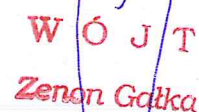 W Ó J T
Zenon Gałka